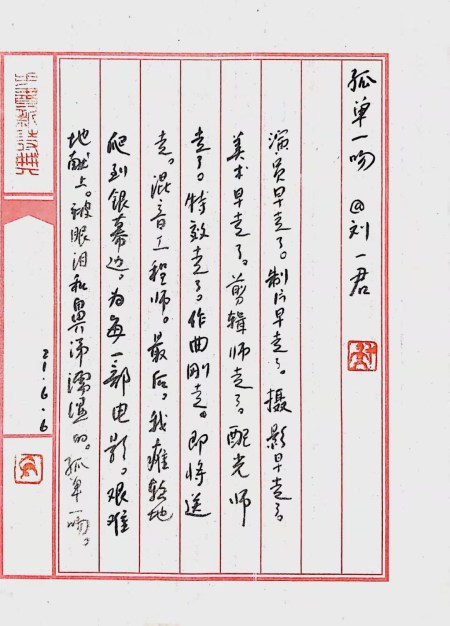 孤单一吻 @刘一君
演员早走了。制片早走了。摄影早走了。
美术早走了。剪辑师走了。配光师
走了。特效走了。作曲刚走。即将送
走。混音工程师。最后。我瘫软地
爬到银幕边。为每一部电影。艰难
地献上。被眼泪和鼻涕濡湿的。孤单一吻。
21.6.6